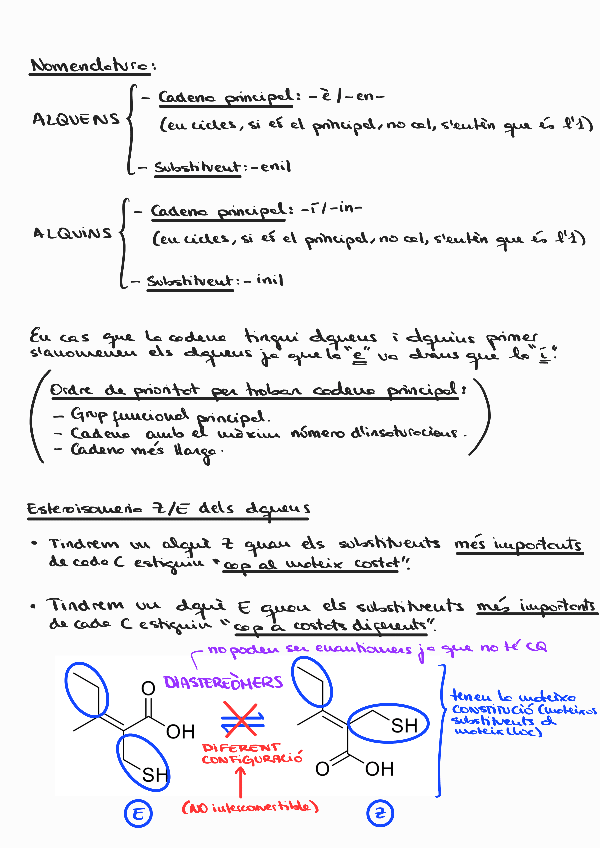 Nomenclatura:
ALQUENS
- Cadena principal: -è / -en-
(en cicles, si és el principal, no cal, s'entén que és l'1)
- Substituent: -enil
ALQUINS
- Cadena principal: -í / -in-
(en cicles, si és el principal, no cal, s'entén que és l'1)
- Substituent: -inil
En cas que la cadena tingui alquens i alquins primer
s'anomenen els alquens ja que la "e" va abans que la "i".
Ordre de prioritat per trobar cadena principal:
- Grup funcional principal.
- Cadena amb el màxim número d'insaturacions.
- Cadena més llarga.
Estereoisomeria Z/E dels alquens
• Tindrem un alquè Z quan els substituents més importants
de cada C estiguin "cap al mateix costat".
• Tindrem un alquè E quan els substituents més importants
de cada C estiguin "cap a costats diferents".
no poden ser enantiomers ja que no té CQ
DIASTEREÒMERS
O
OH
SH
DIFERENT
CONFIGURACIÓ
(NO interconvertible)
E
SH
O
OH
Z
tenen la mateixa
CONSTITUCIÓ (mateixos
substituents al
mateix lloc)